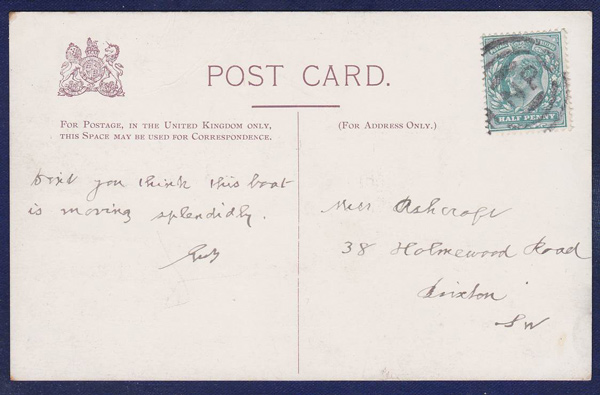 POST CARD.
FOR POSTAGE, IN THE UNITED KINGDOM ONLY,
THIS SPACE MAY BE USED FOR CORRESPONDENCE.
(FOR ADDRESS ONLY.)
HALF PENNY
you think this boat
is moving splendidly.
Miss Ashcroft
38 Holmewood Road
Brixton
SW